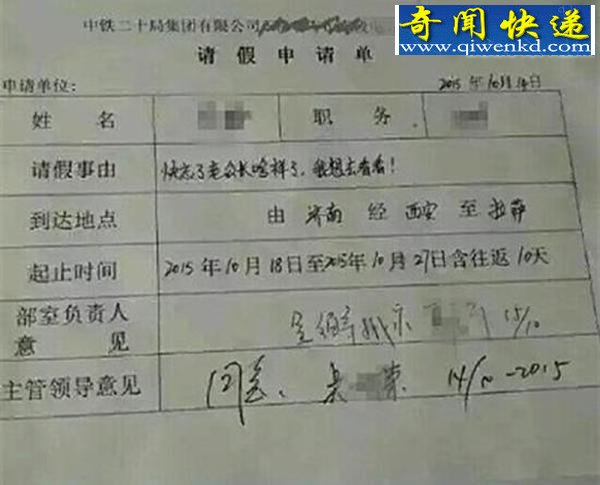 奇闻快递
www.qiwenkd.com
中铁二十局集团有限公司
请假申请单
申请单位： 2015年10月14日
姓名 职务
请假事由 快忘了老公长啥样了，我想去看看！
到达地点 由 济南 经 西安 至 拉萨
起止时间 2015年10月18日至2015年10月27日含往返10天
部室负责人意见 15/10
主管领导意见 同意。 14/10-2015